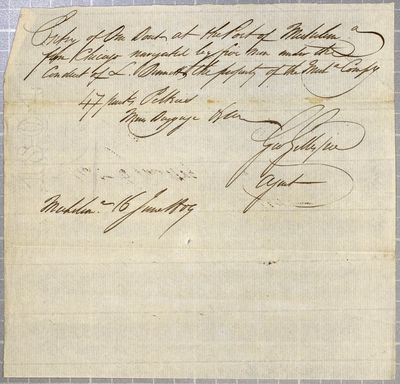 Entry of One Boat at the Port of Mackilina
from Chicago navigated by five men under the
Conduct of L. Bennett the property of the Mackª Compy
47 packs Peltries
Mens Baggage &c
Geo Gillespie
Agent
Mackilinª 16 June 1809